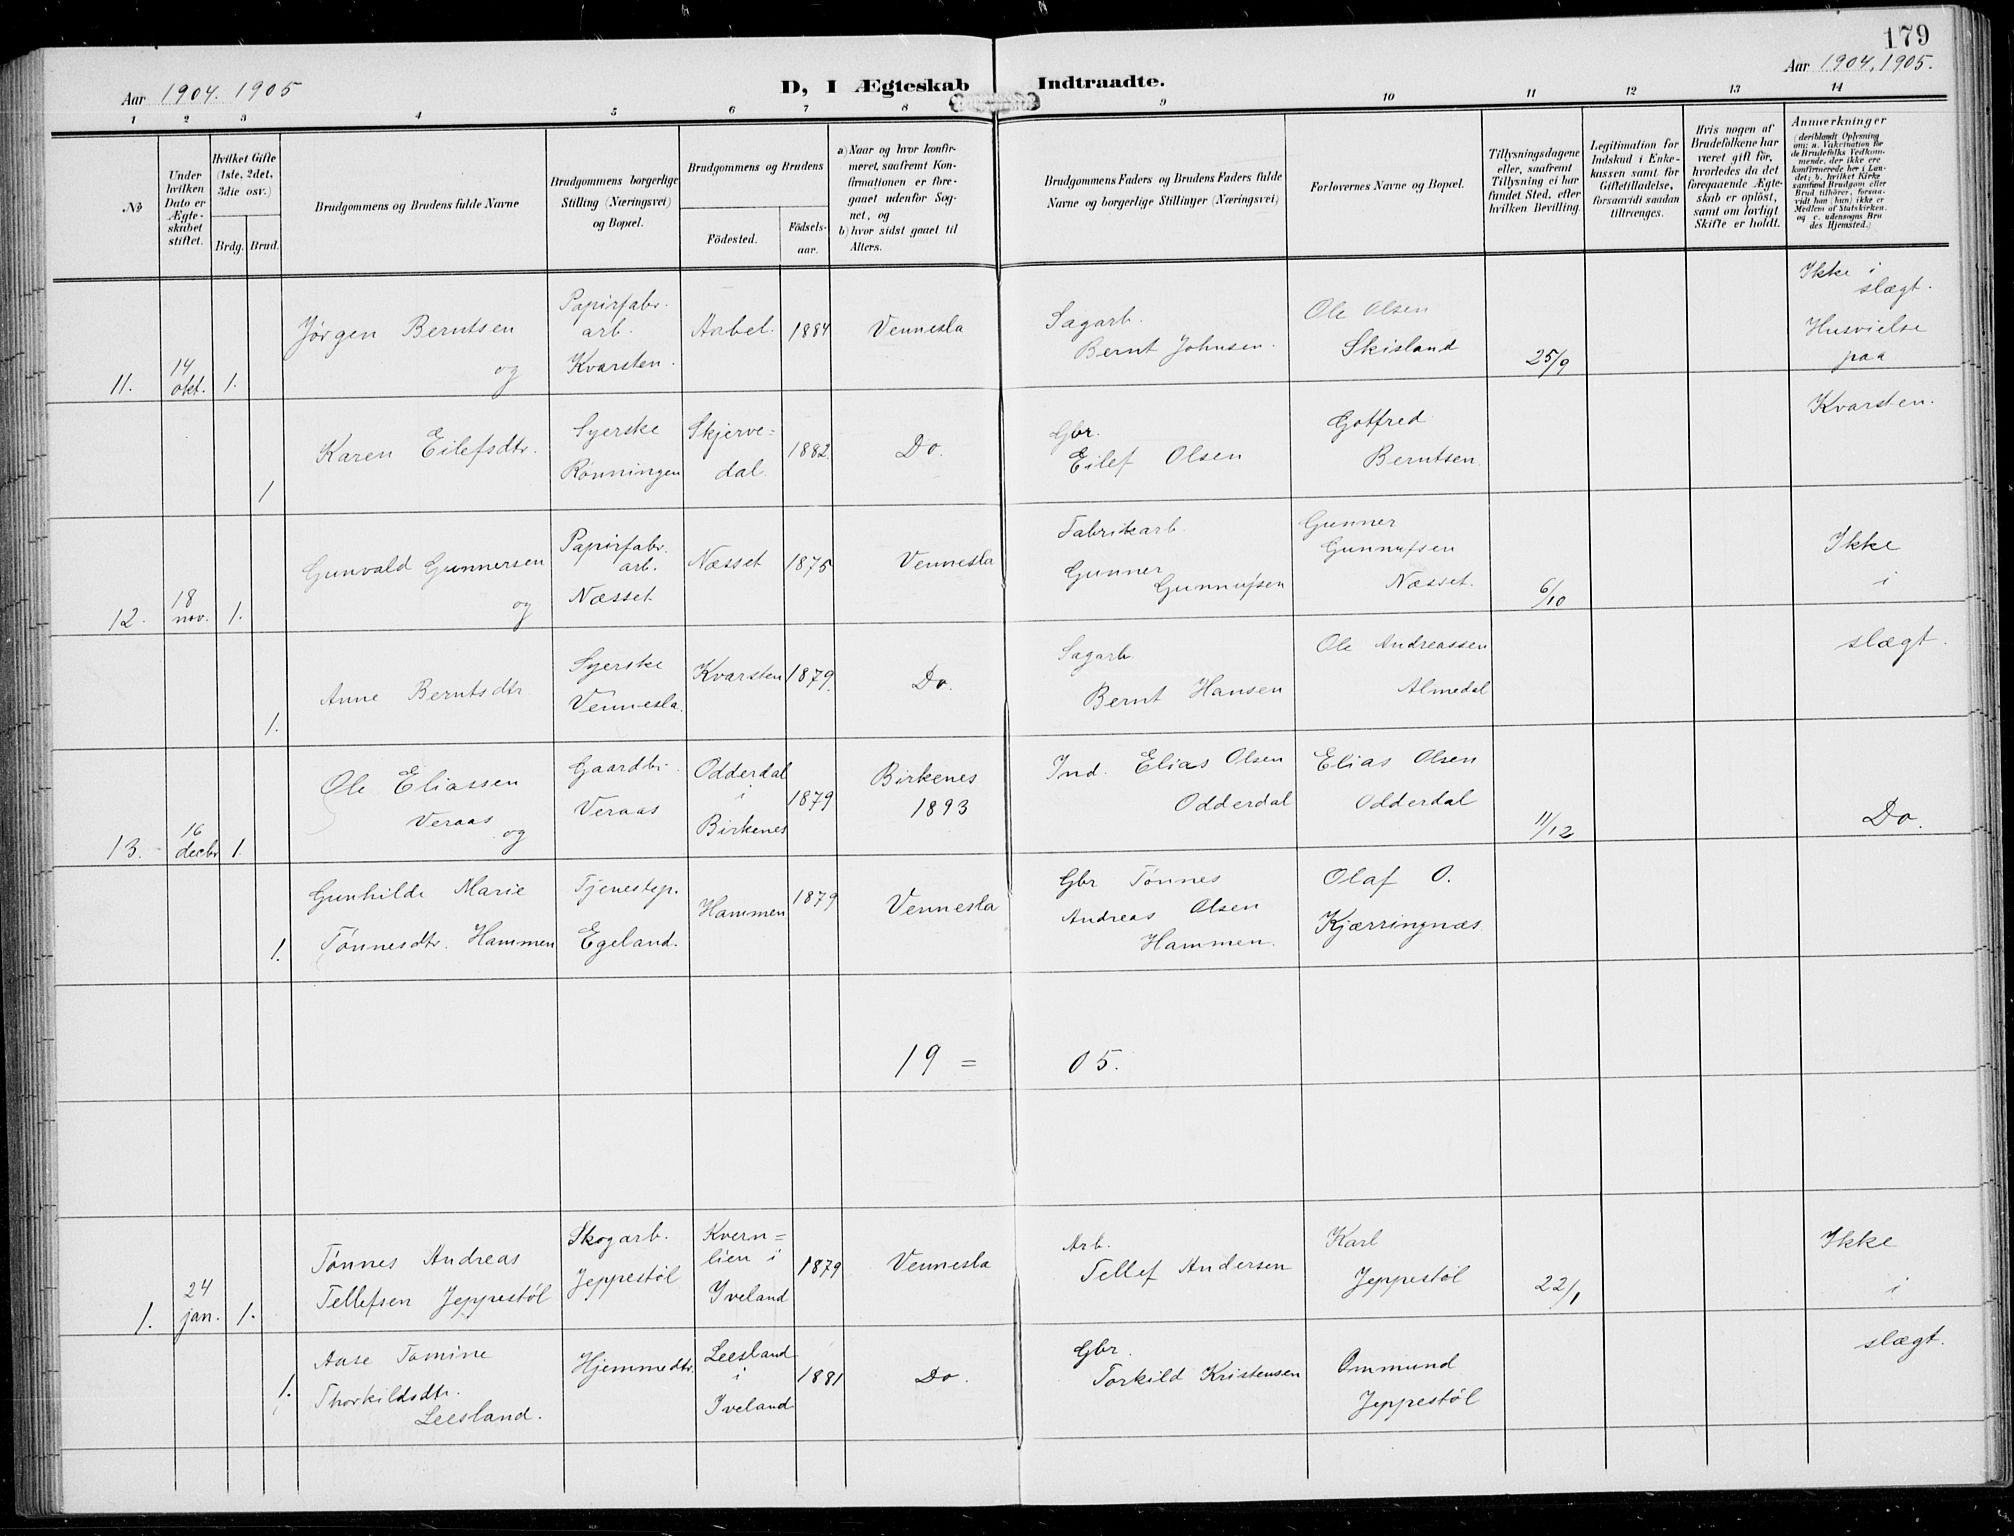 179
Aar 1904. 1905
D, I Ægteskab Indtraadte.
Aar 1904, 1905.
1 2 3 4 5 6 7 8 9 10 11 12 13 14
№
Under hvilken Dato er Ægte-skabet stiftet.
Hvilket Gifte (1ste, 2det, 3die osv.)
Brdg. Brud.
Brudgommens og Brudens fulde Navne
Brudgommens borgerlige Stilling (Næringsvei) og Bopæl.
Brudgommens og Brudens
Födested. Födsels-aar.
a) Naar og hvor konfir-meret, saafremt Kon-firmationen er fore-gaaet udenfor Sog-net, og
b) hvor sidst gaaet til Alters.
Brudgommens Faders og Brudens Faders fulde Navne og borgerlige Stillinger (Næringsvei)
Forlovernes Navne og Bopæl.
Tillysningsdagene eller, saafremt Tillysning ei har fundet Sted, efter hvilken Bevilling.
Legitimation for Indskud i Enke-kassen samt for Giftetilladelse, forsaavidt saadan tiltrænges.
Hvis nogen af Brudefolkene har været gift för, hvorledes da det foregaaende Ægte-skab er oplöst, samt om lovligt Skifte er holdt.
Anmærkninger
(deriblandt Oplysning om: a. Vakcination for de Brudefolks Vedkom-mende, der ikke ere konfirmerede her i Lan-det; b. hvilket Kirke samfund Brudgom eller Brud tilhörer, forsaa-vidt han (hun) ikke er Medlem af Statskirken. og c. udensogns Bru des Hjemsted.)
11. 14 okt. 1.
Jørgen Berntsen
og
Papirfabr. arb. Kvarsten.
Aabel. 1884 Vennesla
Sagarb.
Bernt Johnsen.
Ole Olsen
Skisland
25/9
Ikke i slægt.
Husvielse
paa
Kvarsten.
1
Karen Eilefsdtr.
Syerske
Rønningen
Skjerve=
dal.
1882. Do.
Gbr.
Eilef Olsen
Gotfred
Berntsen
12. 18 nov. 1.
Gunvald Gunnersen
og
Papirfabr. arb.
Næsset
Næsset 1875 Vennesla
Fabrikarb.
Gunner
Gunnufsen
Gunner
Gunnufsen
Næsset.
6/10
Ikke
i
slægt.
1.
Anne Berntsdtr
Syerske
Vennesla.
Kvarsten 1879. Do.
Sagarb
Bernt Hansen
Ole Andreassen
Almedal
13. 16 decbr 1.
Ole Eliassen
Veraas
og
Gaardbr.
Veraas
Odderdal
i
Birkenes
1879
Birkenes
1893
Ind. Elias Olsen
Odderdal
Elias Olsen
Odderdal
11/12
Do.
1.
Gunhilde Marie
Tønnesdtr. Hammen
Tjenestep.
Egeland.
Hammen 1879 Vennesla
Gbr Tønnes
Andreas Olsen
Hammen.
Olaf O.
Kjærringnæs
19 = 05.
1. 24 jan. 1.
Tønnes Andreas
Tellefsen Jeppestøl
Skogarb.
Jeppestøl
Kvern=
lien i
Iveland
1879 Vennesla
Arb.
Tellef Andersen
Karl
Jeppestøl
22/1
Ikke
i
slægt.
1.
Aase Tomine
Thorkildsdtr.
Leesland.
Hjemmedtr.
Leesland
i
Iveland
1881 Do.
Gbr.
Torkild Kristensen
Ommund
Jeppestøl